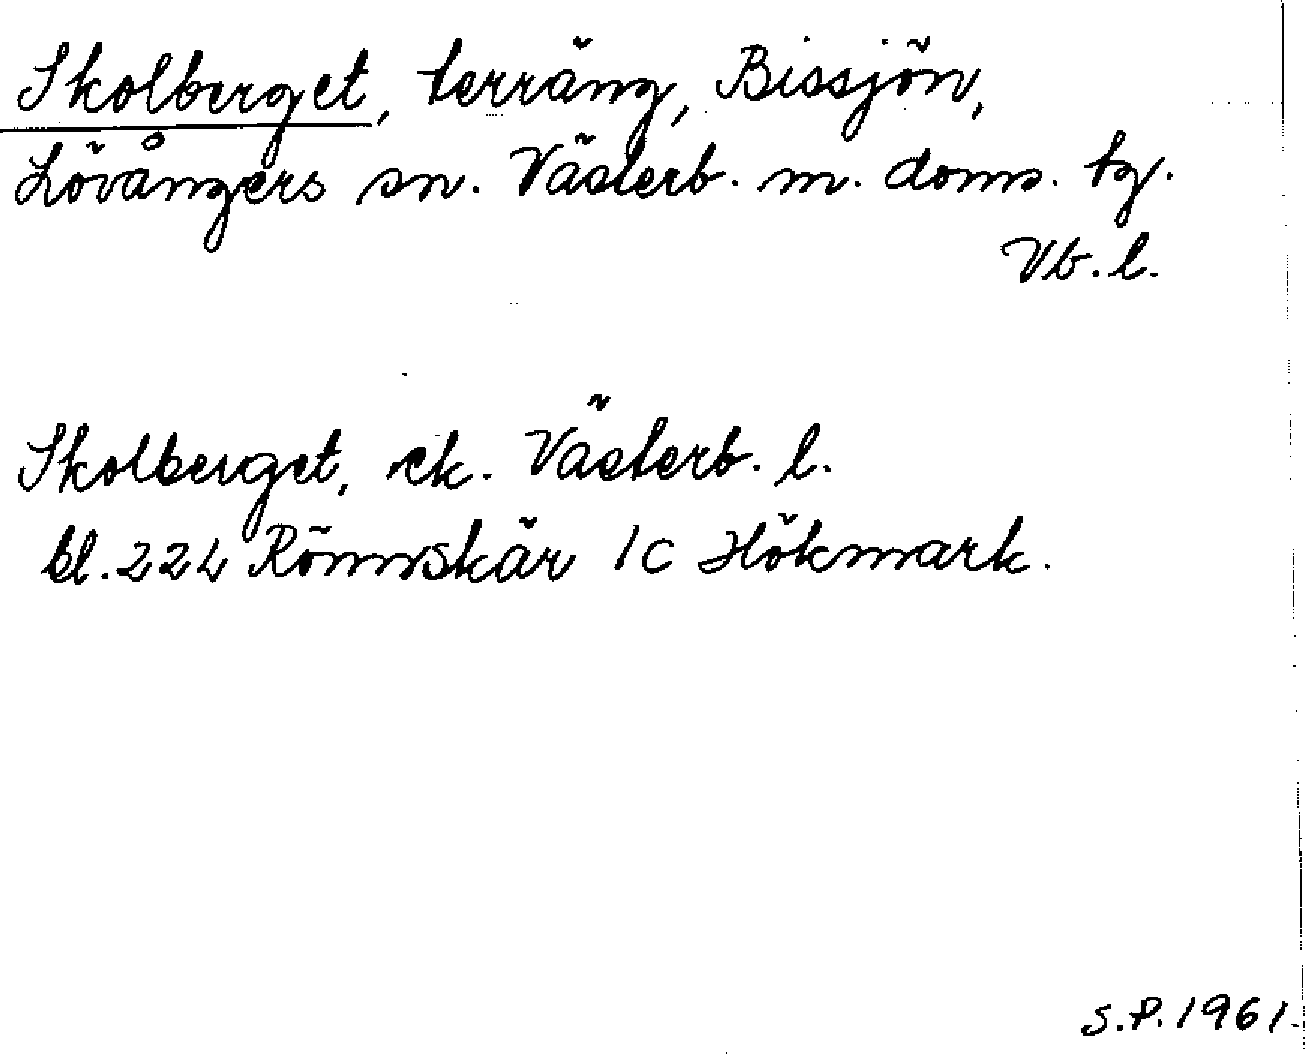 Skolberget, terräng, Bissjön,
Lövångers sn. Västerb. m. doms. tg.
Vb. l.
Skolberget, ek. Västerb. l.
bl. 224 Rönnskär 1c Hökmark.
S.P. 1961